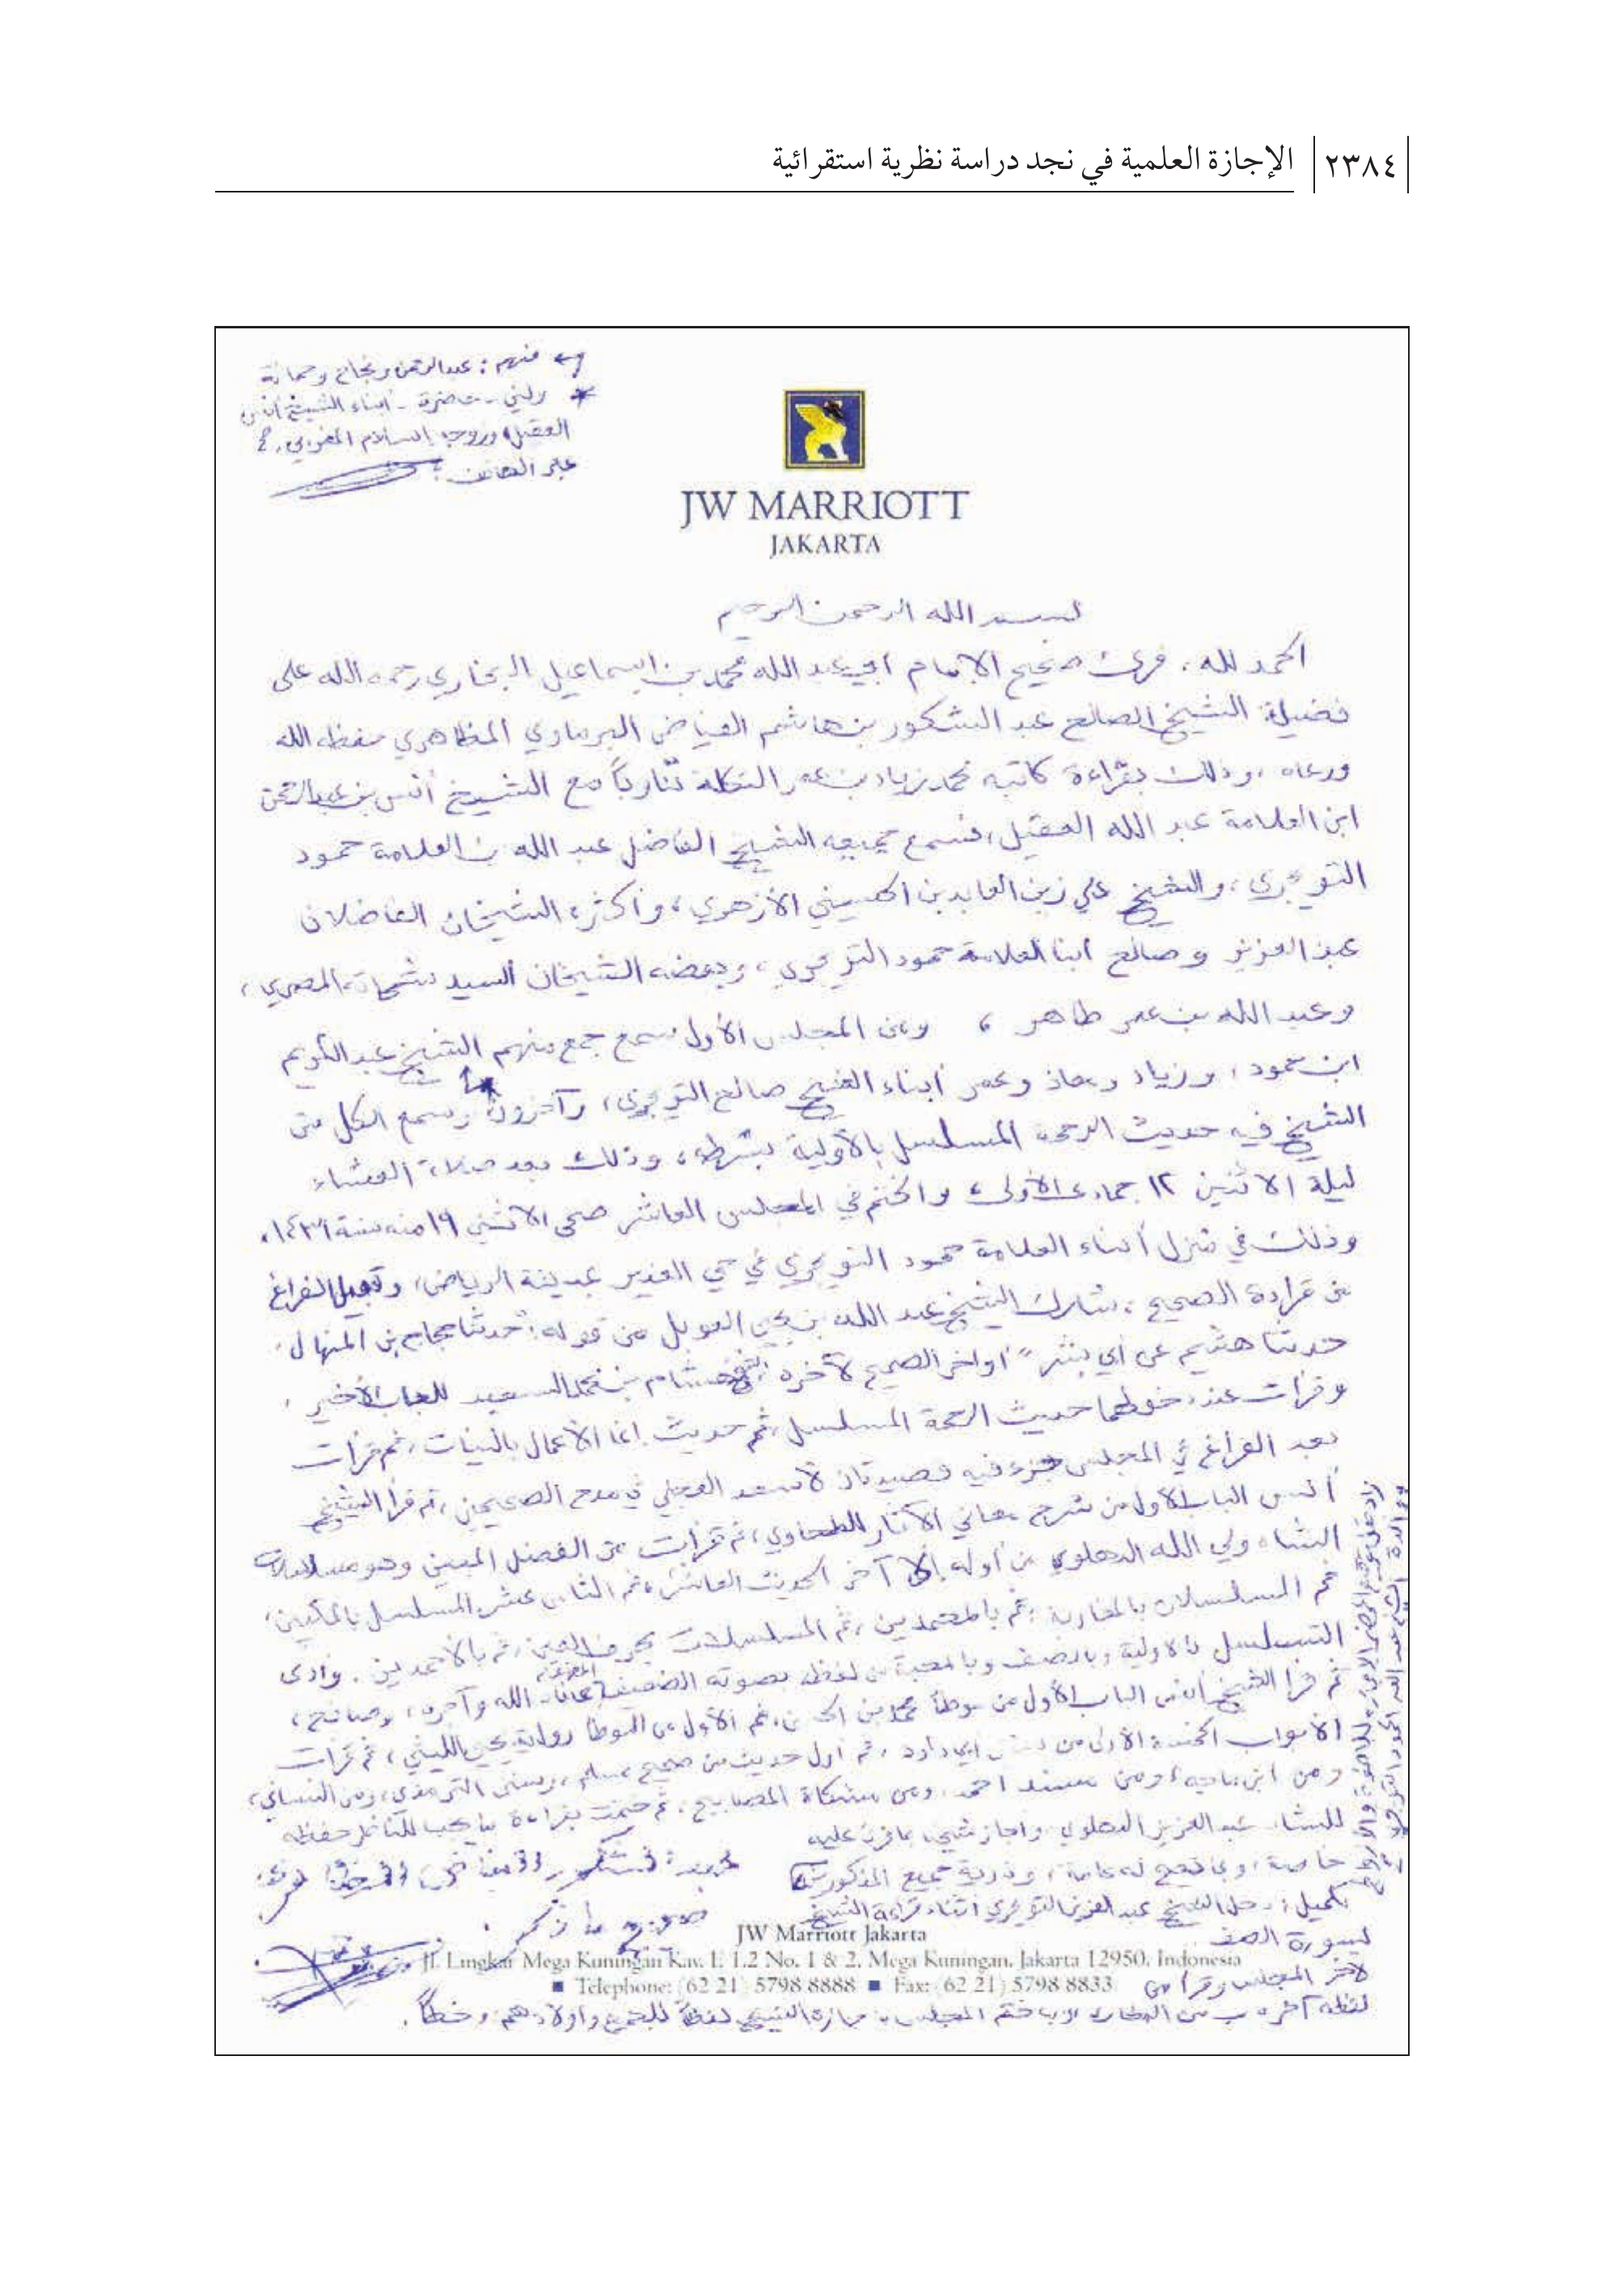 ٢٣٨٤ الإجازة العلمية في نجد دراسة نظرية استقرائية
منهم: عبدالرحمن و وجمانة
ولبنى - حاضرة - أبناء الشيخ أنس
العقيل، وزوجه المغربي،
عبر الهاتف.
JW MARRIOTT
JAKARTA
بسم الله الرحمن الرحيم
الحمد لله. قرئ صحيح الإمام أبي عبد الله محمد بن إسماعيل البخاري رحمه الله على
فضيلة الشيخ الصالح عبد الشكور بن هاشم الفياض البرماوي المظاهري حفظه الله
ورعاه، وذلك بقراءة كاتبه محمد زياد بن عمر التكلة تناوباً مع الشيخ أنس بن عبدالرحمن
ابن العلامة عبد الله العقيل، فسمع جميعه الشيخ الفاضل عبد الله بن العلامة حمود
التويجري، والشيخ علي زين العابدين الحسيني الأزهري، وأكثره الشيخان الفاضلان
عبد العزيز وصالح ابنا العلامة حمود التويجري، وبعضه الشيخان السيد شحاته المصري،
وعبد الله بن عمر طاهر، وفي المجلس الأول سمع جمع منهم الشيخ عبد الكريم
ابن حمود، وزياد ومعاذ وعمر أبناء الشيخ صالح التويجري، وآخرون، وسمع الكل من
الشيخ فيه حديث الرحمة المسلسل بالأولية بشرطه، وذلك بعد صلاة العشاء
ليلة الاثنين ١٢ جمادى الأولى، والختم في المجلس العاشر ضحى الاثنين ١٩ منه سنة ١٤٣٦،
وذلك في منزل أبناء العلامة حمود التويجري في حي الغدير بمدينة الرياض، وقبيل الفراغ
من قراءة الصحيح، شارك الشيخ عبد الله بن يحيى العوبل من قوله: "حدثنا حجاج بن المنهال،
حدثنا هشيم عن أبي بشر" أواخر الصحيح لآخره، هشام بن محمد السعيد للباب الأخير،
وقرأت عند حديث الرحمة المسلسل، ثم حديث إنما الأعمال بالنيات، ثم قرأت
بعد الفراغ في المجلس جزء فيه قصيدتان لأسعد العجلي في مدح الصحيحين، ثم قرأ الشيخ
أنس الباب الأول من شرح معاني الآثار للطحاوي، ثم قرأت من الفضل المبين وهو مسلسلات
الشاه ولي الله الدهلوي من أوله إلى آخر الحديث العاشر، ثم الثاني عشر المسلسل بالمكيين،
ثم المسلسلات بالمغاربة، ثم بالمعتمدين، ثم المسلسلات بحرف العين، ثم بالأحمدين.
المسلسل بالأولية وبالضيف وبالمحبة من لفظه بصوته الضعيف عافاه الله وآجره، وصافح،
ثم قرأ الشيخ أنس الباب الأول من موطأ محمد بن الحسن، ثم الأول من الموطأ رواية يحيى الليثي، ثم قرأت
الأبواب الخمسة الأولى من سنن أبي داود، ثم أول حديث من صحيح مسلم، وسنن الترمذي، ومن النسائي،
ومن ابن ماجه، ومن مسند أحمد، ومن مشكاة المصابيح، ثم ختمت بقراءة ما يجب للناظر حفظه
للشاه عبد العزيز الدهلوي، وأجاز شيخنا بما قرئ عليه
خاصة، وبما تصح له عامة، وذرية جميع المذكورين
تكميل: دخل الشيخ عبد العزيز التويجري أثناء قراءة الشيخ
لسورة الصف
لآخر المجلس وقرأ من
لفظه آخر ختم المجلس بإجازة الشيخ لفظاً للجميع وأولادهم، وخطاً.
صحيح ما ذكر
JW Marriott Jakarta
Jl. Lingkar Mega Kuningan Kav. E 1.2 No. 1 & 2, Mega Kuningan, Jakarta 12950, Indonesia
Telephone: (62 21) 5798 8888 Fax: (62 21) 5798 8833